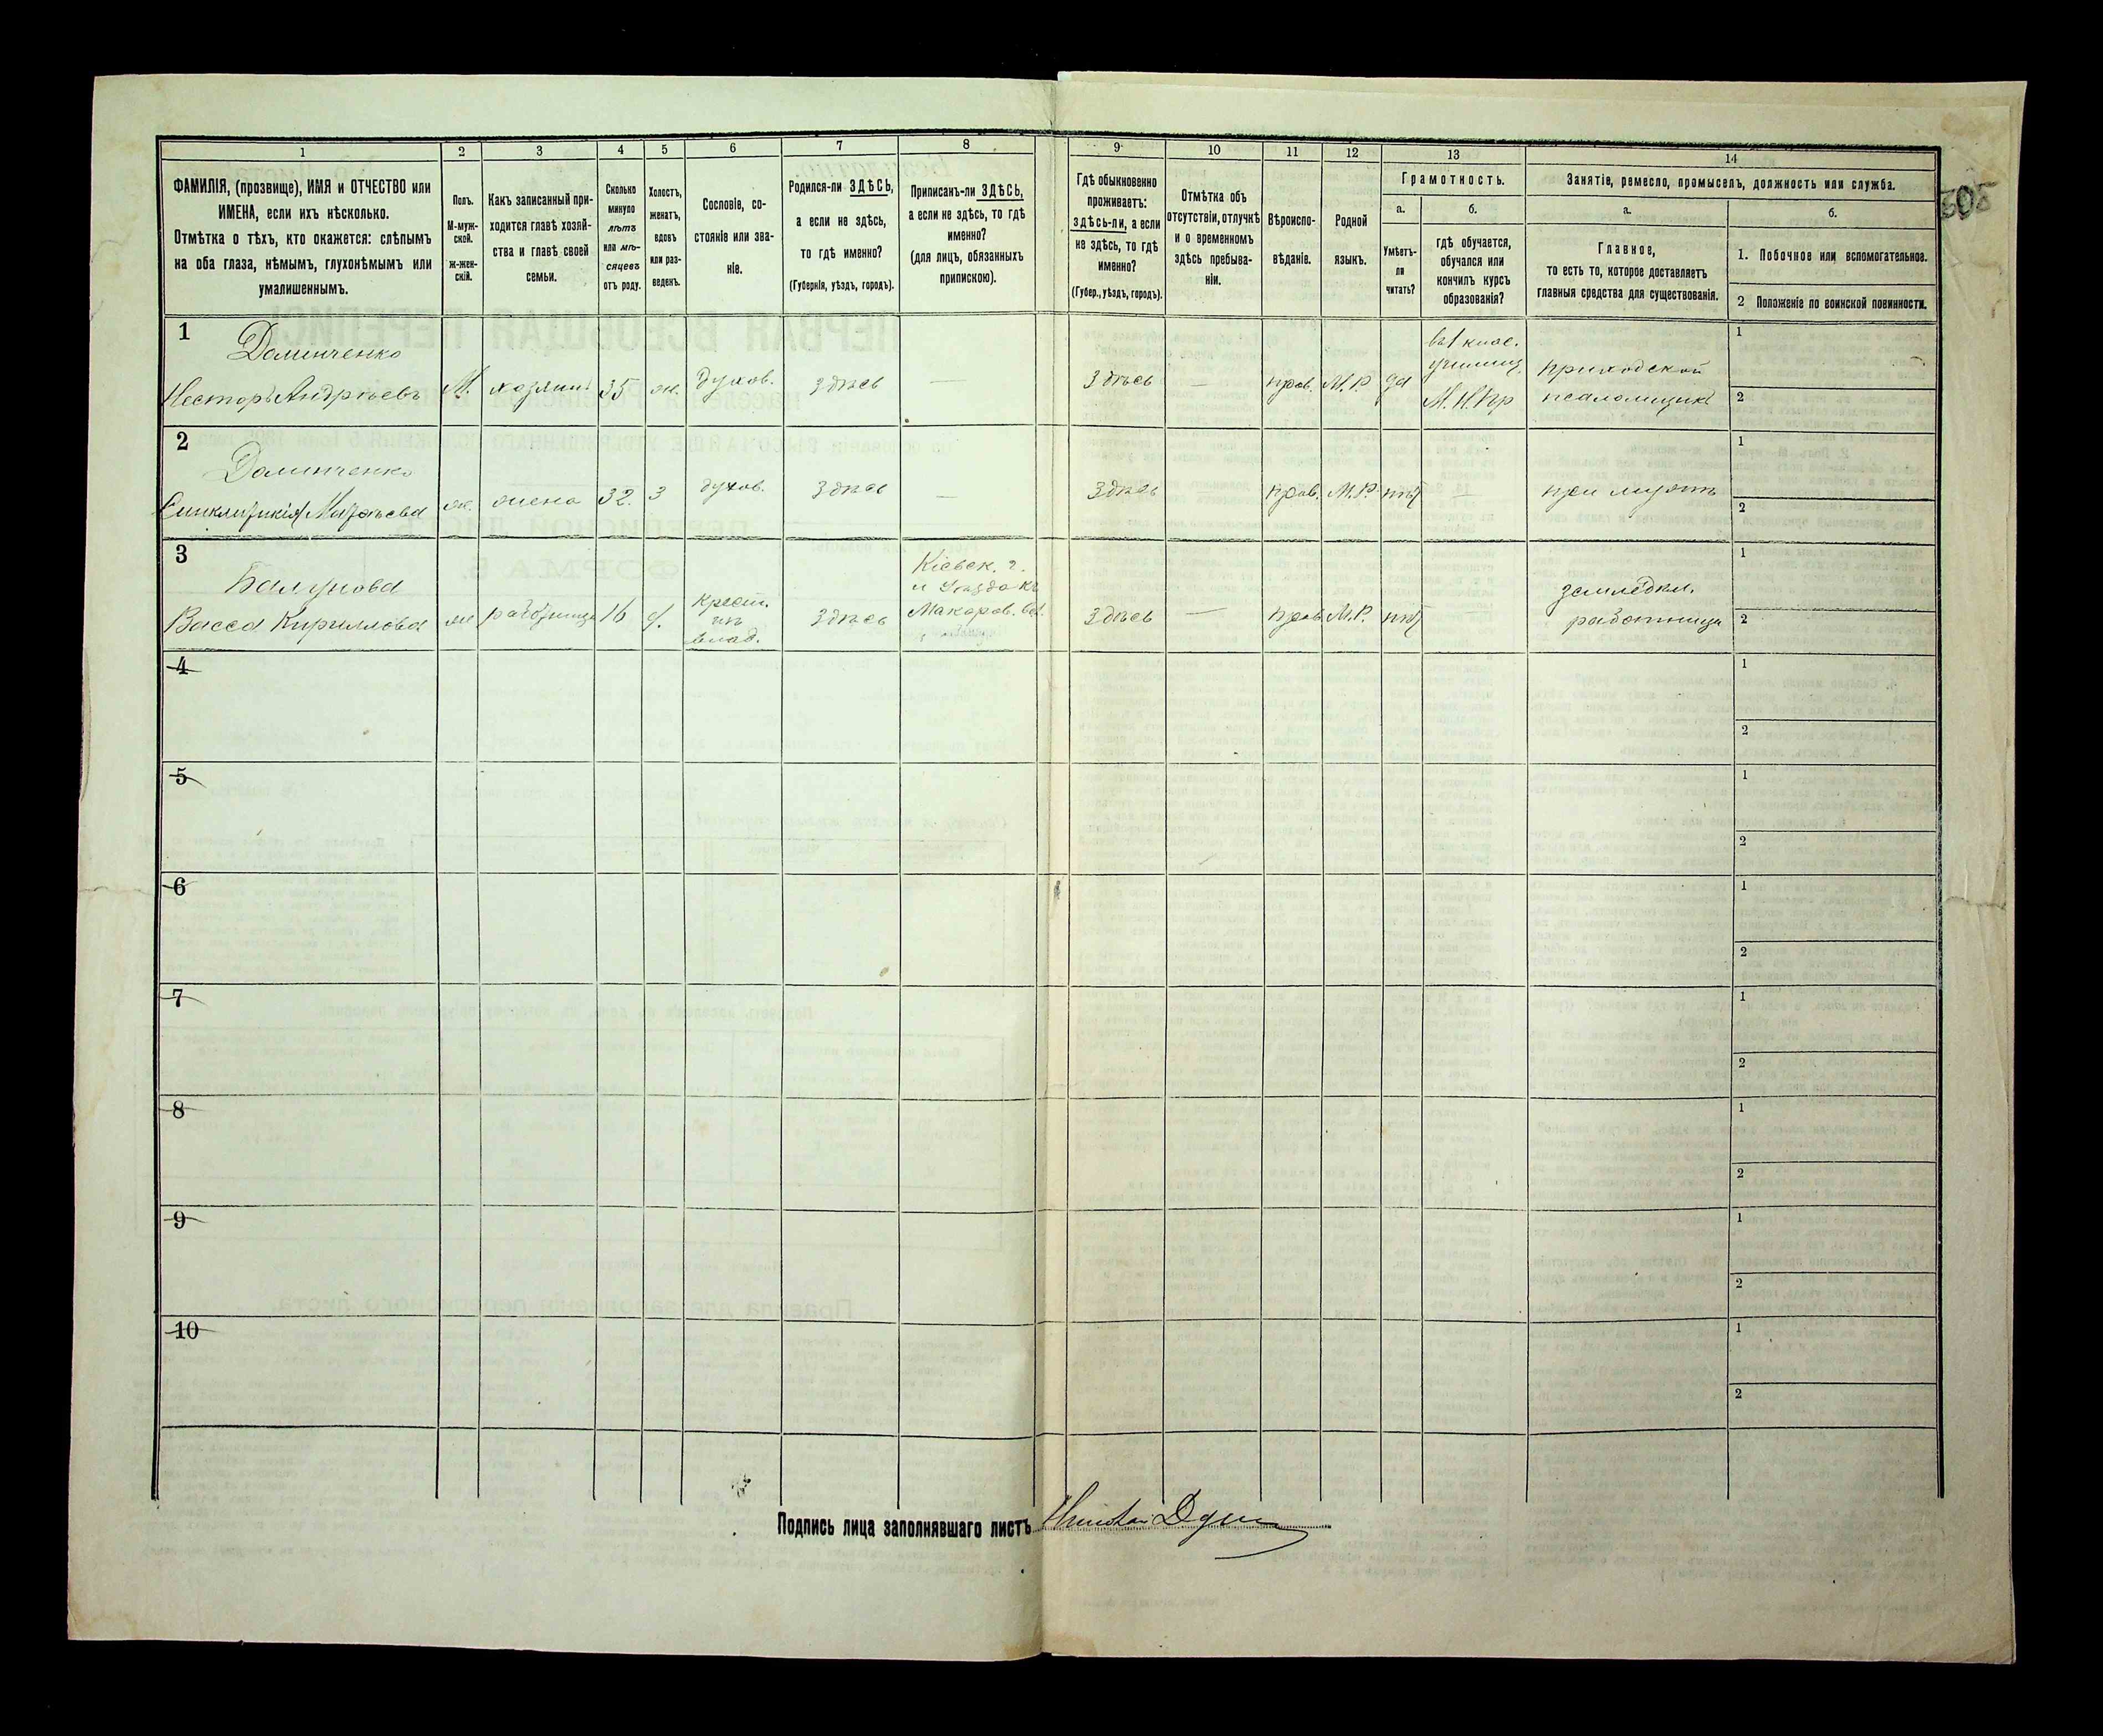 1 2 3 4 5 6 7 8 9 10 11 12 13 14
ФАМИЛІЯ, (прозвище), ИМЯ и ОТЧЕСТВО или
ИМЕНА, если ихъ нѣсколько.
Отмѣтка о тѣхъ, кто окажется: слѣпымъ
на оба глаза, нѣмымъ, глухонѣмымъ или
умалишеннымъ.
Полъ.
М-муж-
ской.
ж-жен-
скій.
Какъ записанный при-
ходится главѣ хозяй-
ства и главѣ своей
семьи.
Сколько
минуло
лѣтъ
или мѣ-
сяцевъ
отъ роду.
Холостъ,
женатъ,
вдовъ
или раз-
веденъ.
Сословіе, со-
стояніе или зва-
ніе.
Родился-ли ЗДѢСЬ,
а если не здѣсь,
то гдѣ именно?
(Губернія, уѣздъ, городъ).
Приписанъ-ли ЗДѢСЬ,
а если не здѣсь, то гдѣ
именно?
(для лицъ, обязанныхъ
припискою).
Гдѣ обыкновенно
проживаетъ:
здѣсь-ли, а если
не здѣсь, то гдѣ
именно?
(Губер., уѣздъ, городъ).
Отмѣтка объ
отсутствіи, отлучкѣ
и о временномъ
здѣсь пребыва-
ніи.
Вѣроиспо-
вѣданіе.
Родной
языкъ.
Грамотность.
а.
Умѣетъ-
ли
читать?
б.
гдѣ обучается,
обучался или
кончилъ курсъ
образованія?
Занятіе, ремесло, промыселъ, должность или служба.
а.
Главное,
то есть то, которое доставляетъ
главныя средства для существованія.
б.
1. Побочное или вспомогательное.
2 Положеніе по воинской повинности.
1
Доминченко
Несторъ Андреѣевъ М. хозяинъ 35 ж. духов. здѣсь — здѣсь — прав. М.Р. да
въ 1 клас.
училищ.
М. Н. Пр
приходской
псаломщикъ
1
2
2
Доминченко
Синклитикія Матѳѣева ж. жена 32. з духов. здѣсь — здѣсь — прав. М.Р. нѣтъ — при мужѣ
1
2
3
Васса Кириллова ж работница 16 д. здѣсь
крест.
изъ
влад.
Кіевск. г.
и уѣзда
Макаров. вол.
здѣсь — прав. М.Р. нѣтъ
земледѣл.
работница
1
2
4
1
2
5
1
2
6
1
2
7
1
2
8
1
2
9
1
2
10
1
2
Подпись лица заполнявшаго листъ